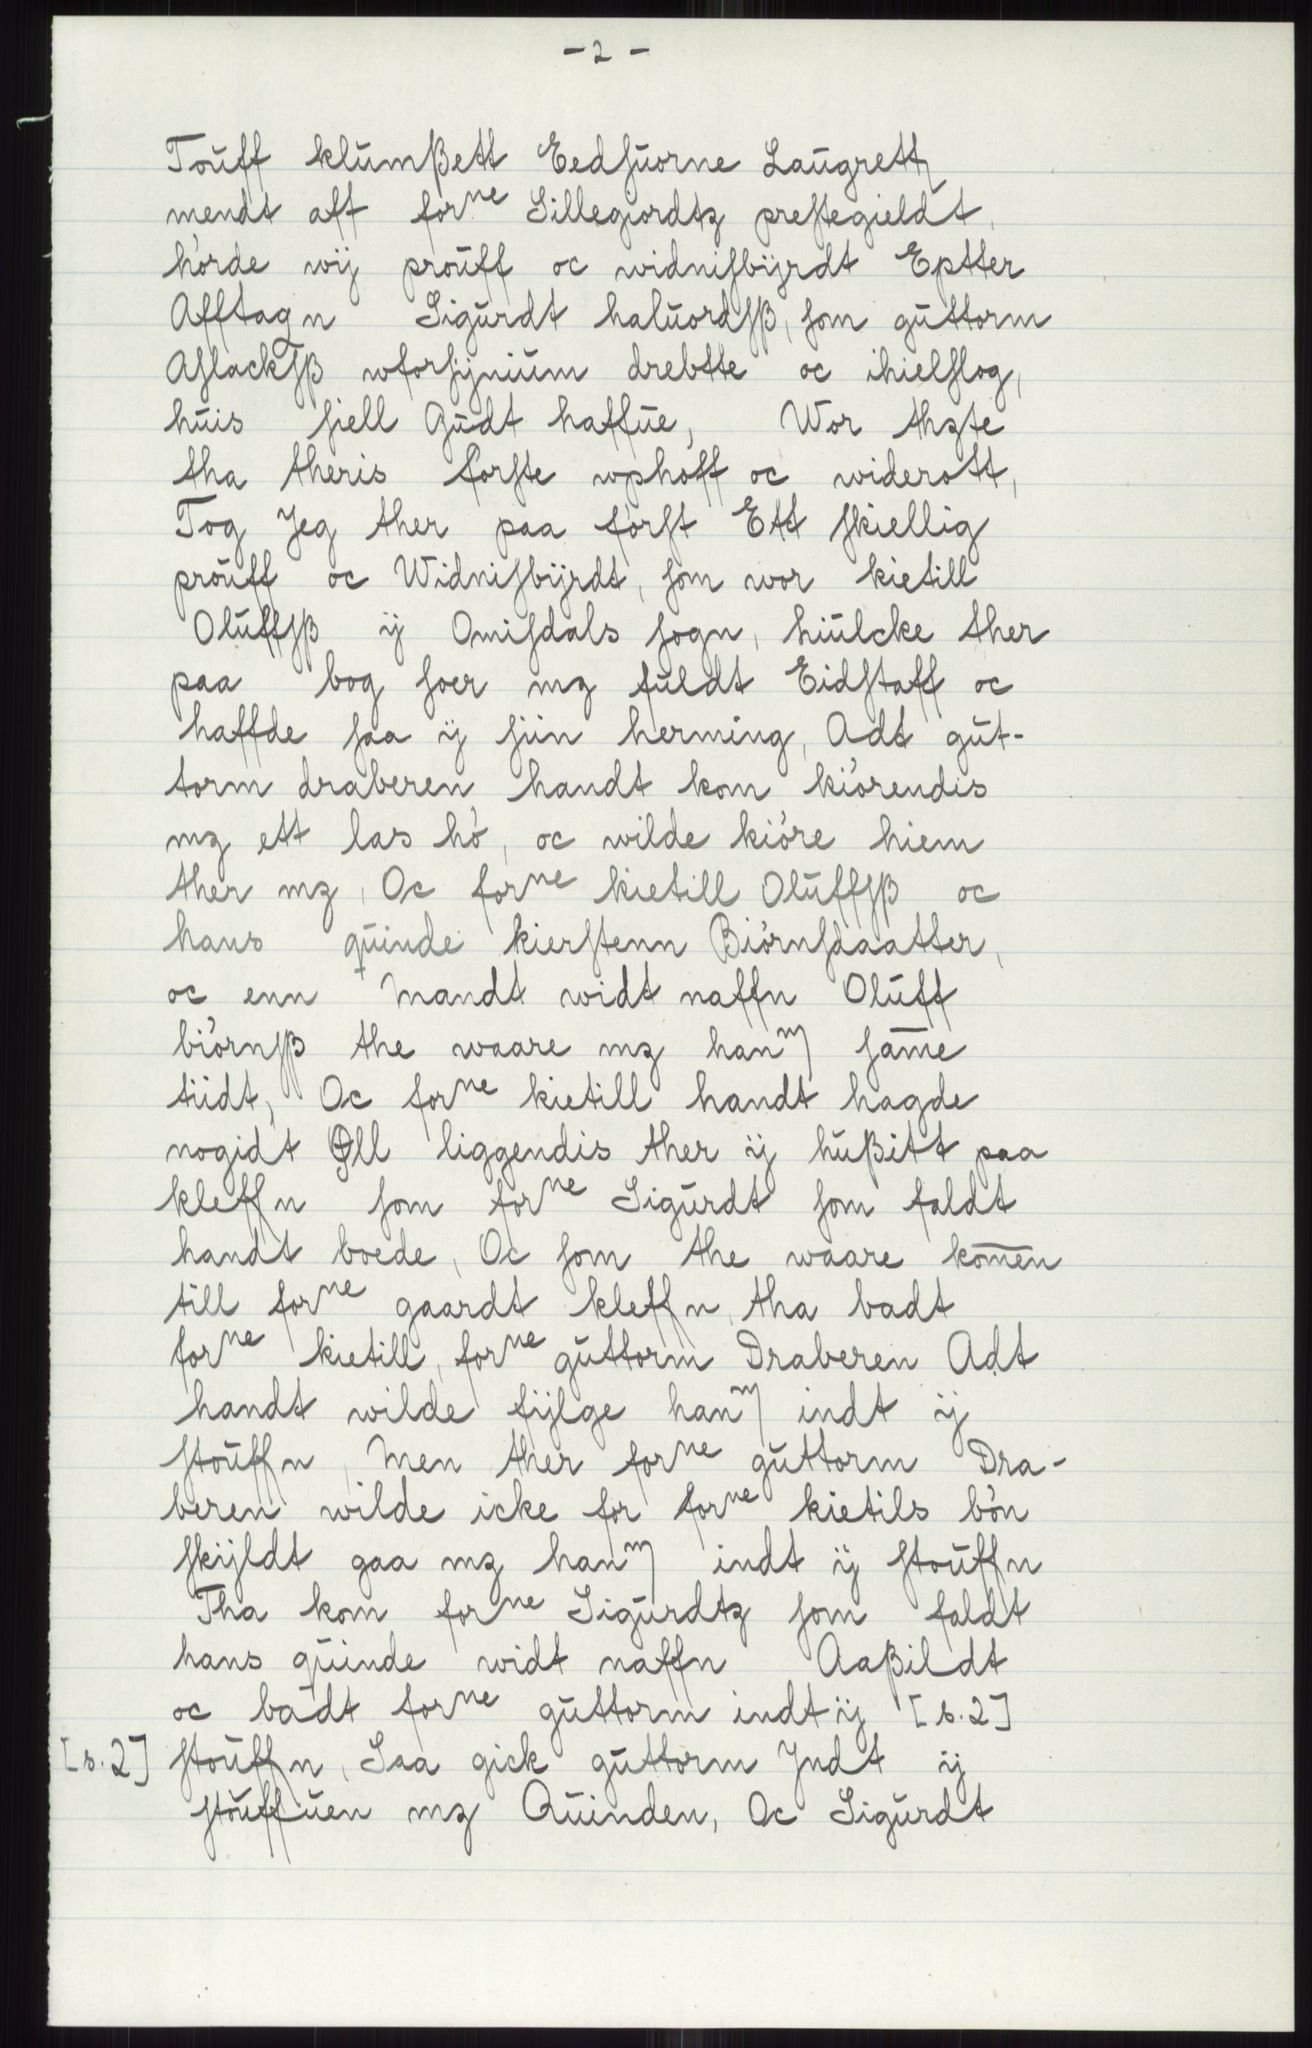 - 2 -
Toŭff klŭmßett Eedſŭorne Laŭgrett
mendt aff forⁿᵉ Sillegiordtz preſtegieldt,
hörde wij proŭff oc widniſbÿrdt Eptter
Afftagn Sigŭrdt halŭordſß, ſom gŭttorm
Aſlackſß wforſÿniŭm drebtte oc ihielſlog,
hŭis ſiell Gŭdt haffŭe, Wor thzte
tha theris forſte wphoff oc widerott,
Tog Jeg ther paa förſt Ett ſkiellig
proŭff oc Widniſbÿrdt, ſom wor kietill
Olŭffſß ÿ Omiſdals ſogn, hŭilcke ther
paa bog ſoer mz fŭldt Eidſtaff oc
haffde ſaa ÿ ſiin herming, Adt gŭt-
torm draberen handt kom kiörendis
mz ett las hö, oc wilde kiöre hiem
ther mz, Oc forⁿᵉ kietill Olŭffſß oc
hans qŭinde kierſtenn Biörnſdaatter,
oc enn Mandt widt naffn Olŭff
biörnſß the waare mz hanᵐ ſam̄e
tiidt, Oc forⁿᵉ kietill handt hagde
nogidt Øll liggendis ther ÿ hŭßitt paa
kleffn ſom forⁿᵉ Sigŭrdt ſom faldt
handt boede, Oc ſom the waare kom̄en
till forⁿᵉ gaardt kleffn, tha badt
forⁿᵉ kietill, forⁿᵉ gŭttorm Draberen Adt
handt wilde fÿlge hanᵐ indt ÿ
ſtoŭffn, Men ther forⁿᵉ gŭttorm Dra-
beren wilde icke for forⁿᵉ kietils bön
ſkÿldt gaa mz hanᵐ indt ÿ ſtoŭffn
Tha kom forⁿᵉ Sigŭrdtz ſom faldt
hans qŭinde widt naffn Aaßildt
oc badt forⁿᵉ gŭttorm indt ÿ [s.2]
[s.2] ſtoŭffn, Saa gick gŭttorm Jndt ÿ
ſtŭffŭen mz Qŭinden, Oc Sigŭrdt